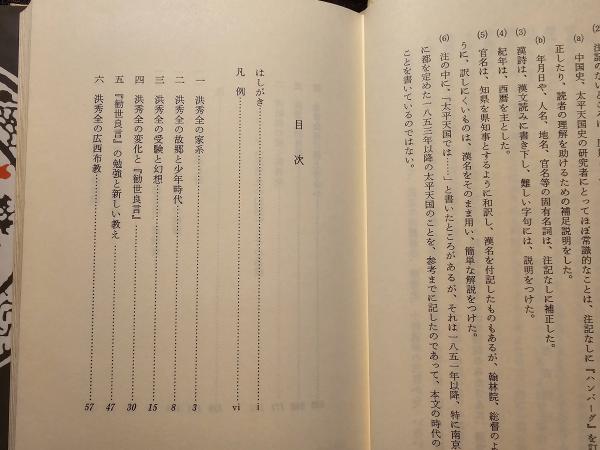 (a) 中国史、太平天国史の研究者にとってほぼ常識的なことは、注記なしに『ハンバーグ』を訂
正したり、読者の理解を助けるための補足説明をした。
(b) 年月日や、人名、地名、官名等の固有名詞は、注記なしに補正した。
(3) 漢詩は、漢文読みに書き下し、難しい字句には、説明をつけた。
(4) 紀年は、西暦を主とした。
(5) 官名は、知県を県知事とするように和訳し、漢名を付記したものもあるが、翰林院、総督のよ
うに、訳しにくいものは、漢名をそのまま用い、簡単な解説をつけた。
(6) 注の中に、「太平天国では……」と書いたところがあるが、それは一八五一年以降、特に南京
に都を定めた一八五三年以降の太平天国のことを、参考までに記したのであって、本文の時代の
ことを書いているのではない。
目次
はしがき……i
凡例……vi
一 洪秀全の家系……3
二 洪秀全の故郷と少年時代……8
三 洪秀全の受験と幻想……15
四 洪秀全の変化と『勧世良言』……30
五 『勧世良言』の勉強と新しい教え……47
六 洪秀全の広西布教……57